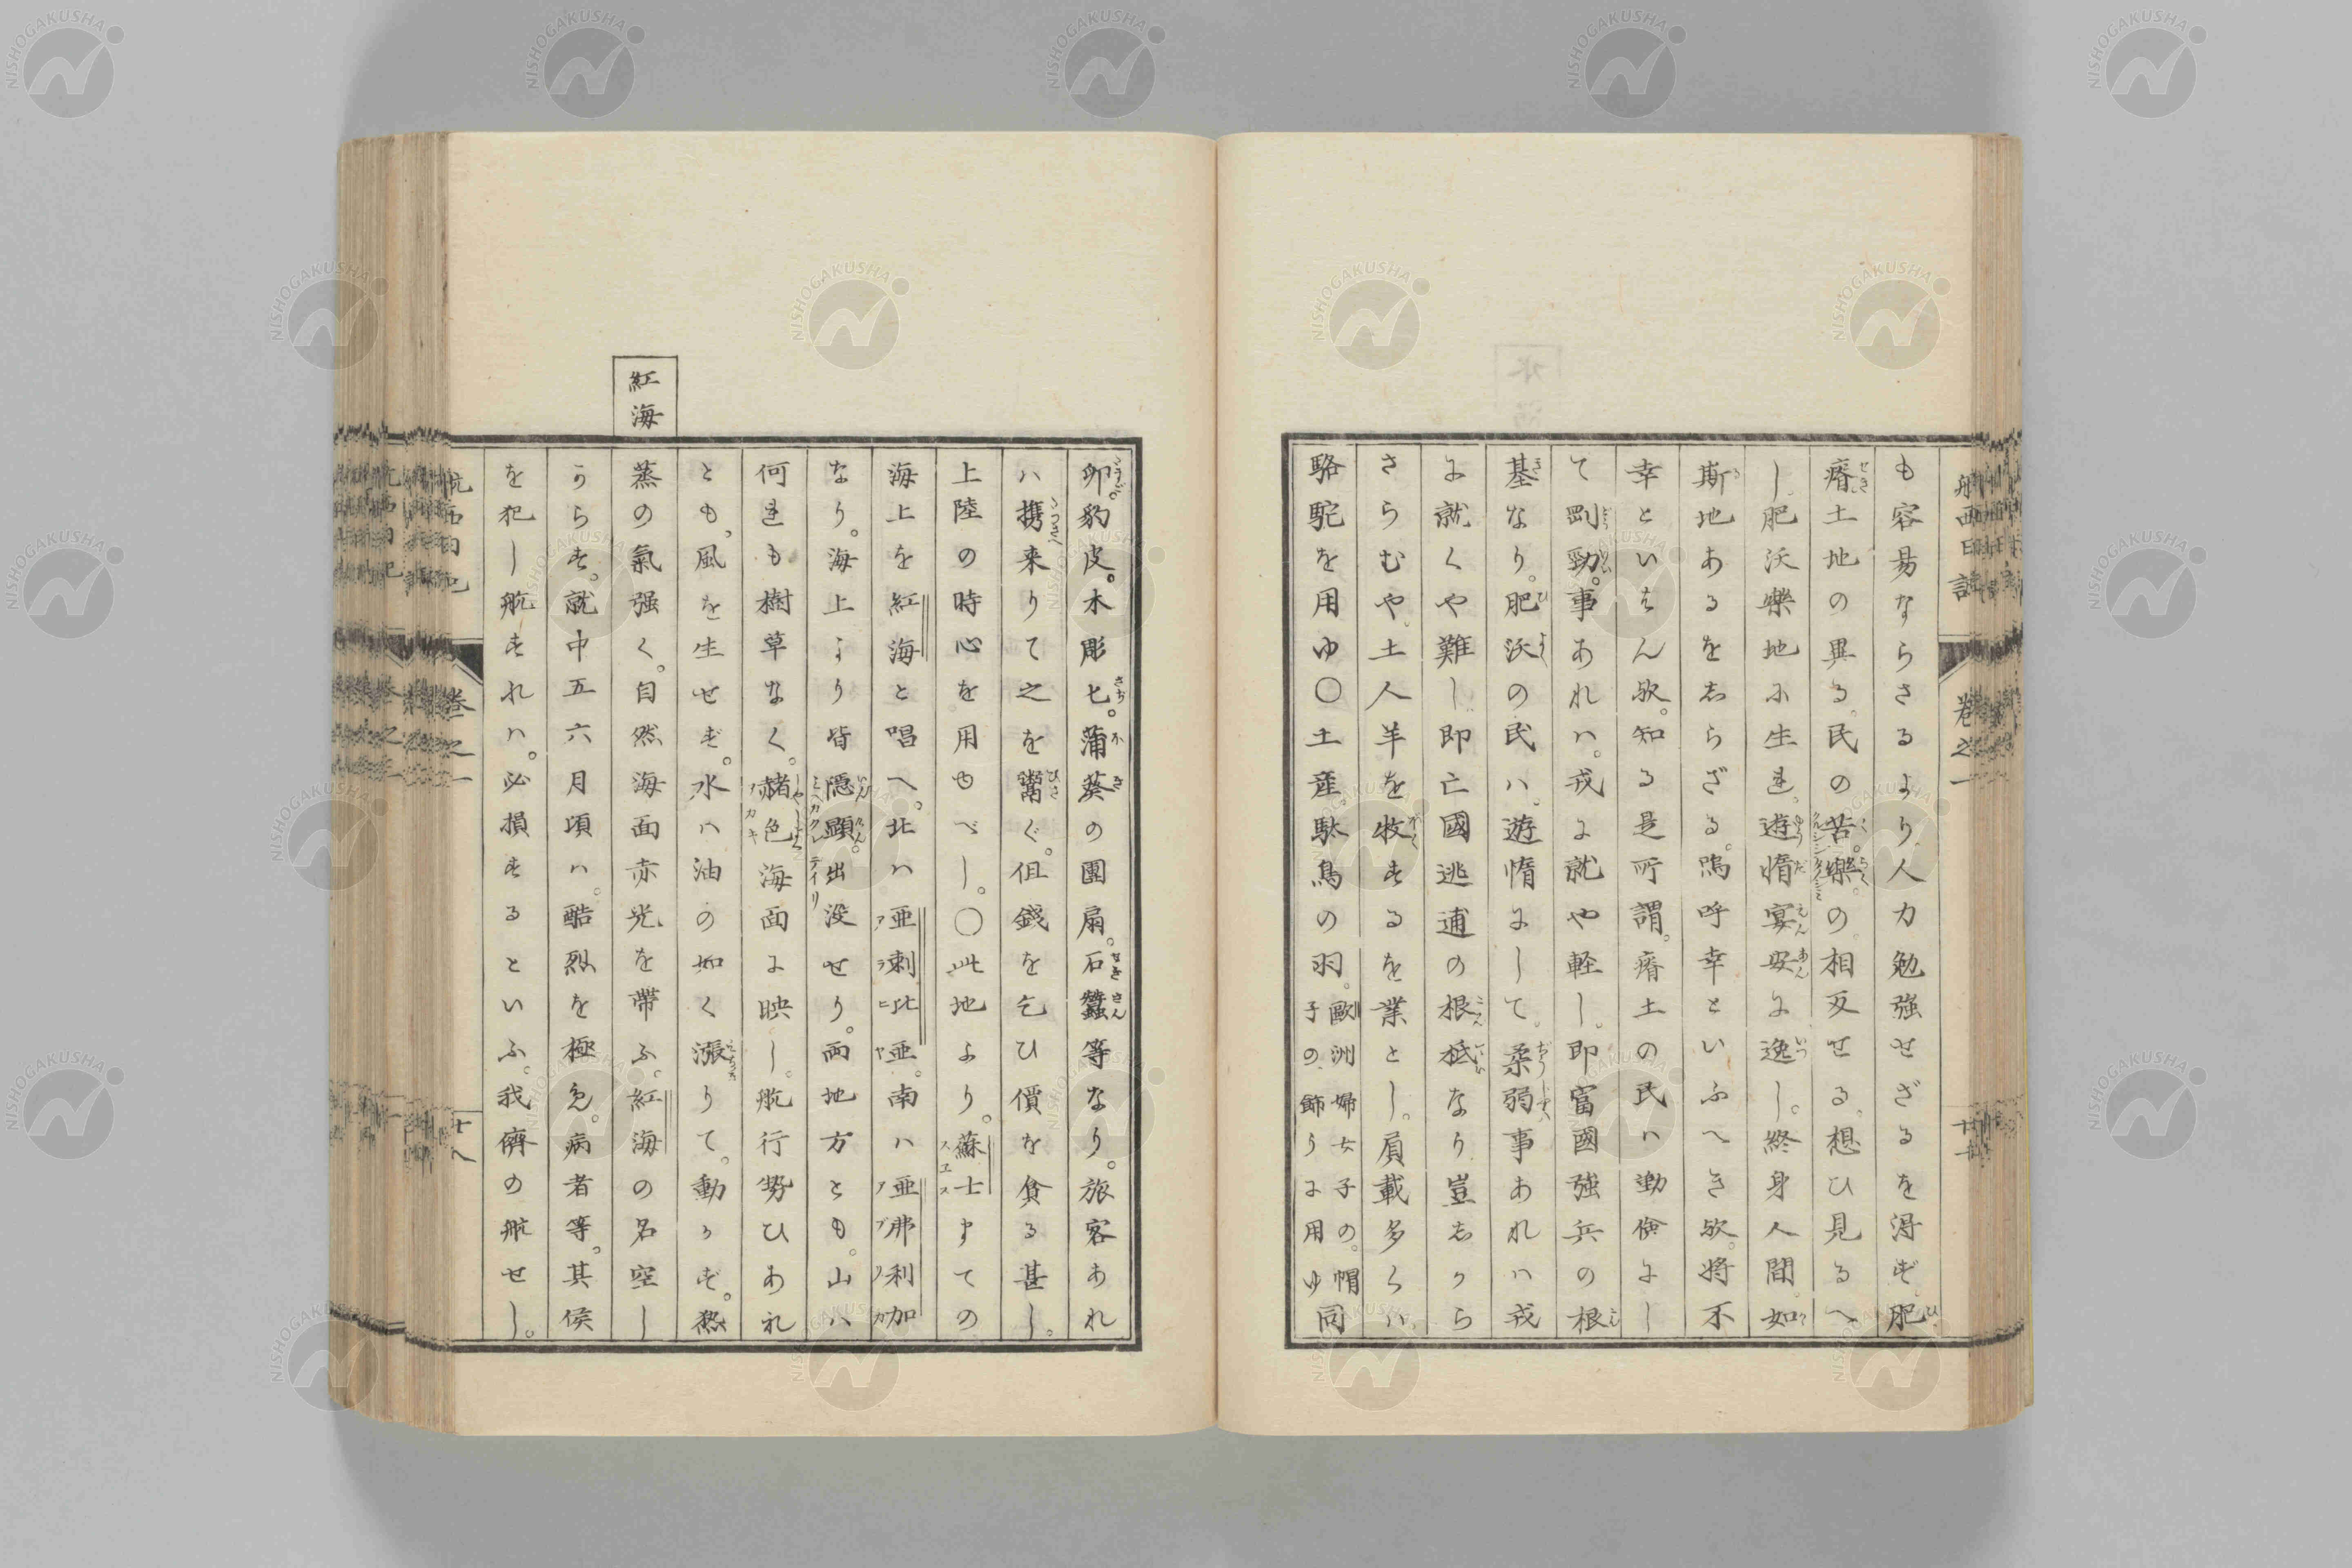 も容易ならさるより人力勉強せざるを得ず。肥
瘠土地の異る。民の苦。樂。の相反せる。想ひ見るへ
し。肥沃樂地に生れ。遊惰宴安に逸し。終身人間。如
斯地あるをしらざる。嗚呼幸といふへき歟。将不
幸といはん歟。知る是所謂。瘠土の民ハ勤儉にし
て剛勁。事あれハ。戎に就や軽し。即富國強兵の根
基なり。肥沃の民ハ。遊惰にして。柔弱事あれハ戎
に就くや難し。即亡國逃逋の根柢なり豈しから
さらむや。土人羊を牧するを業とし。屓載多くハ
駱駝を用ゆ〇土産。駄鳥の羽。歐洲婦女子の。帽子の飾りに用ゆ同
航西日記
巻之一
卵。豹皮。木彫匕。蒲葵の團扇。石蠶等なり。旅客あれ
ハ携来りて之を鬻ぐ。但錢を乞ひ價を貪る甚し。
上陸の時心を用ゆべし。〇此地より。蘇士まての
海上を紅海と唱へ。北ハ亜刺比亜。南ハ亜弗利加
なり。海上より皆隠顕。出没せり。両地方とも。山ハ
何れも樹草なく。赭色海面に映し。航行勢ひあれ
とも。風を生せず。水ハ油の如く漲りて。動かず。熱
紅海
蒸の氣强く。自然海面赤光を帯ふ。紅海の名空し
からす。就中五六月頃ハ。酷烈を極む。病者等。其侯
を犯し航すれハ。必損するといふ。我儕の航せし。
巻之一
十八